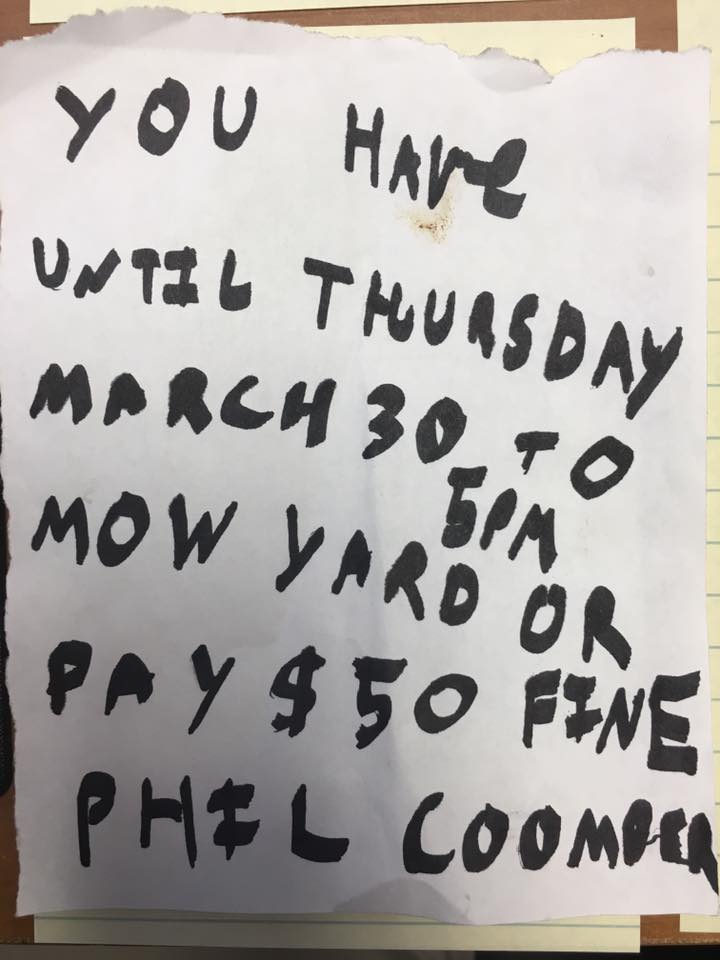 YOU HAVe
UNTIL THURSDAY
MARCH 30 TO
5PM
MOW YARD OR
PAY $50 FINE
PHIL COOMBER